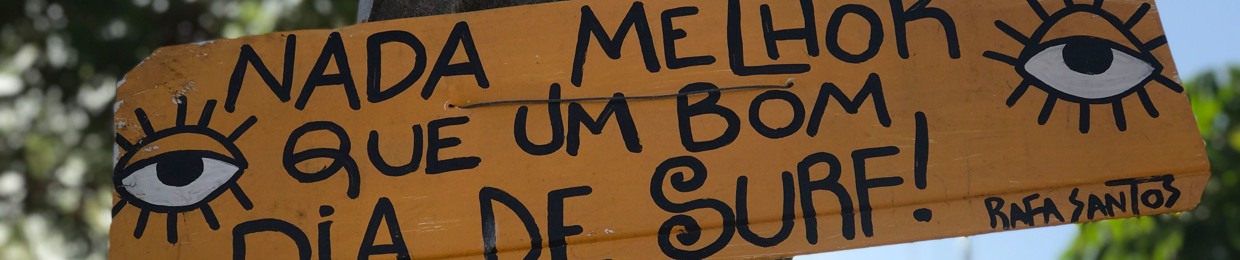 NADA MELHOR
QUE UM BOM
DIA DE SURF!
RAFA SANTOS